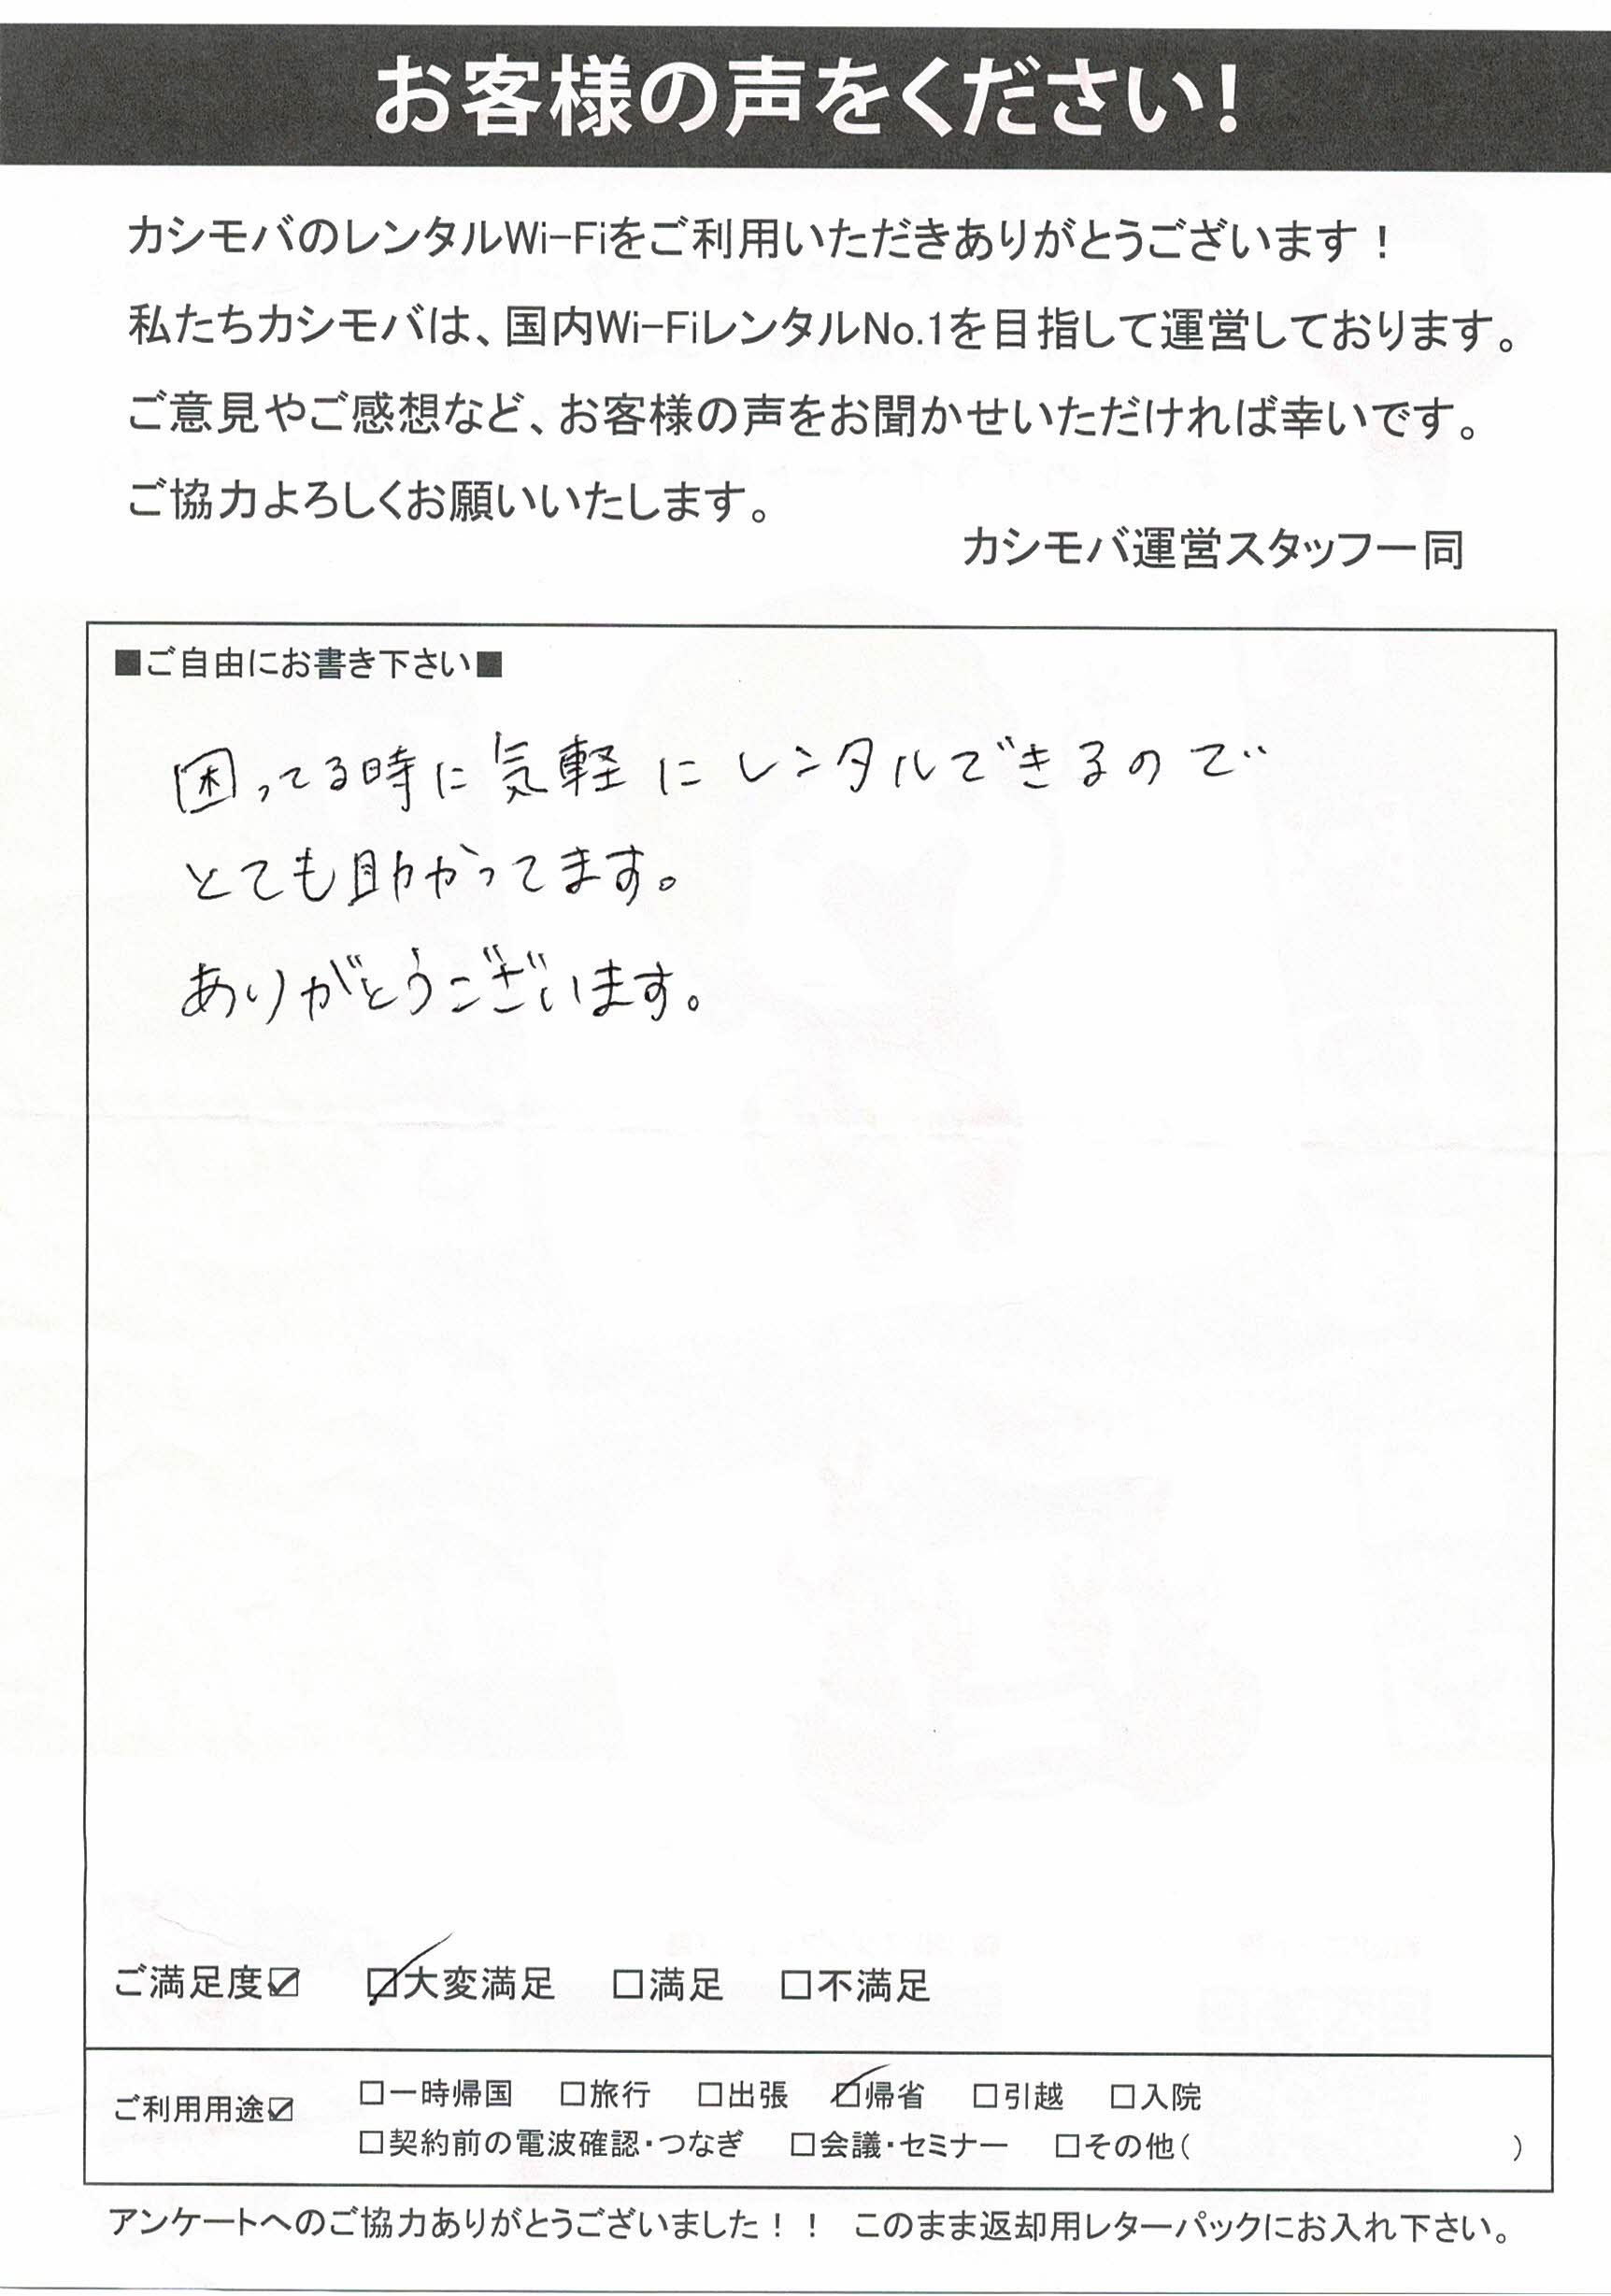 お客様の声をください!
カシモバのレンタルWi-Fiをご利用いただきありがとうございます！
私たちカシモバは、国内Wi-FiレンタルNo.1を目指して運営しております。
ご意見やご感想など、お客様の声をお聞かせいただければ幸いです。
ご協力よろしくお願いいたします。
カシモバ運営スタッフ一同
■ご自由にお書き下さい■
困ってる時に気軽にレンタルできるので
とても助かってます。
ありがとうございます。
ご満足度☑ ☑大変満足 □満足 □不満足
ご利用用途☑ □一時帰国 □旅行 □出張 ☑帰省 □引越 □入院
□契約前の電波確認・つなぎ □会議・セミナー □その他( )
アンケートへのご協力ありがとうございました！！ このまま返却用レターパックにお入れ下さい。